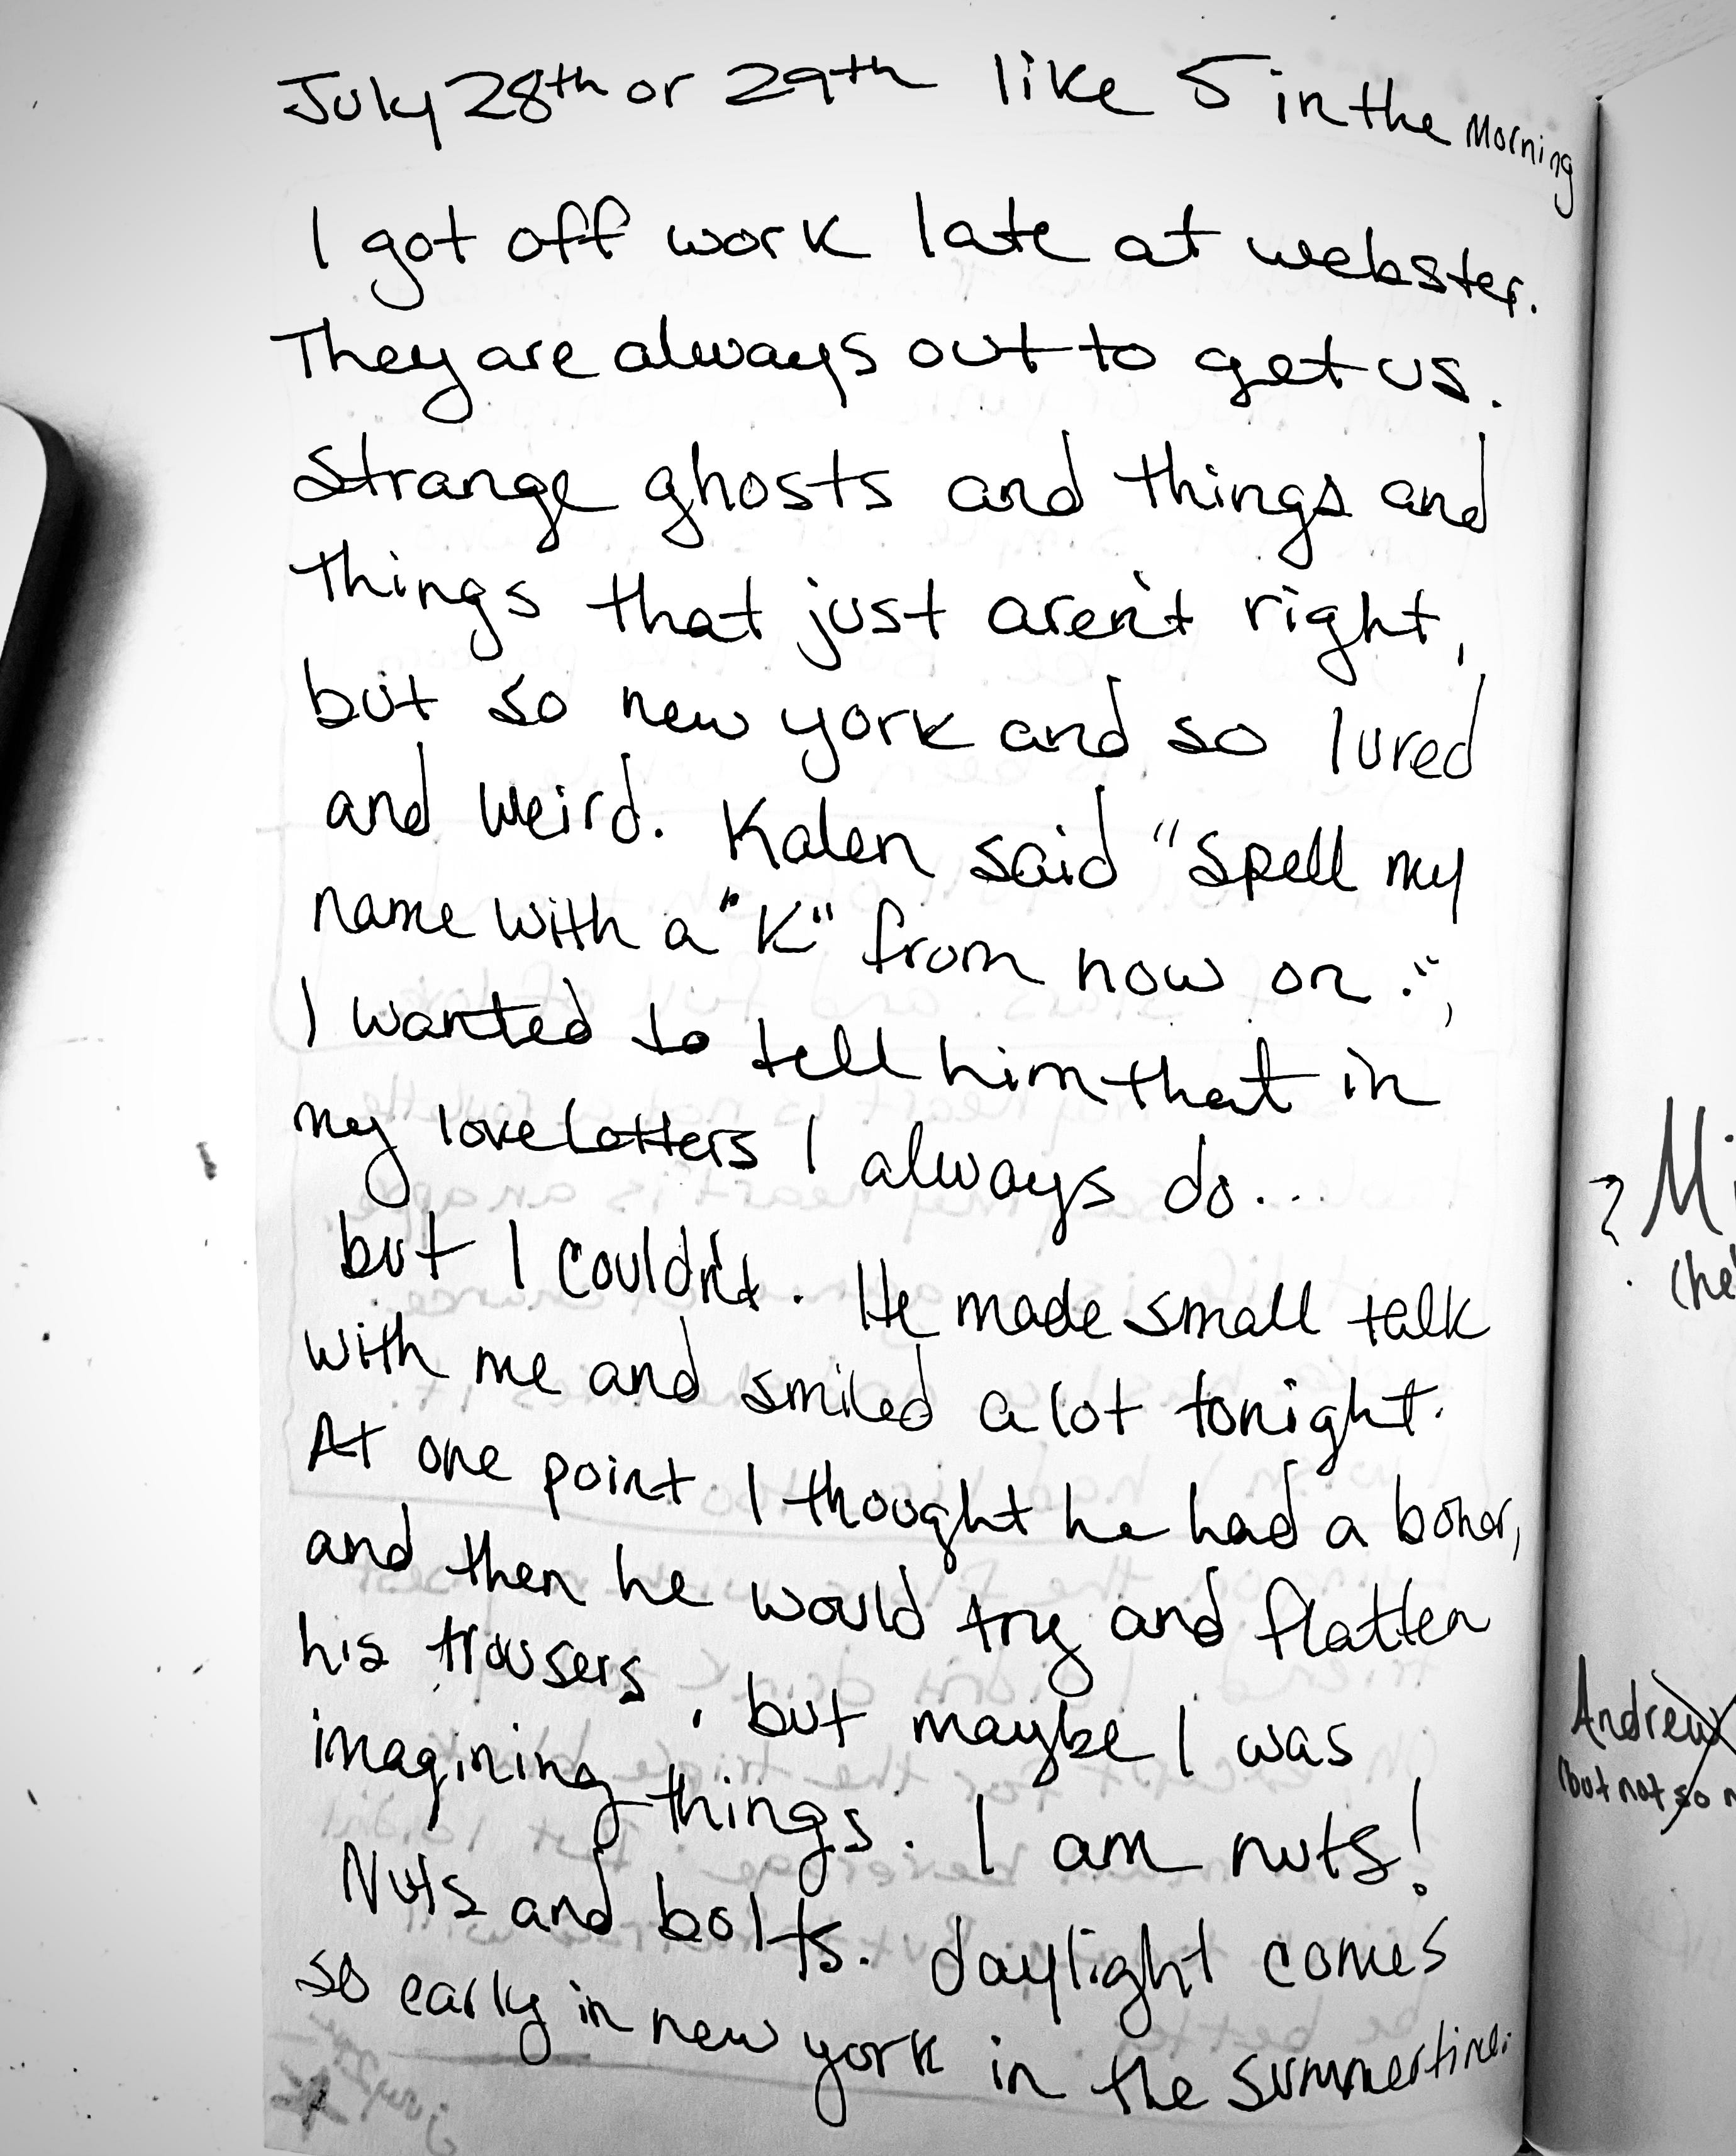 July 28th or 29th like 5 in the Morning
I got off work late at webster.
They are always out to get us.
Strange ghosts and things and
things that just aren't right,
but so new york and so lured
and weird. Kalen said "spell my
name with a "K" from now on.",
I wanted to tell him that in
my love letters I always do...
but I couldn't. He made small talk
with me and smiled a lot tonight.
At one point I thought he had a boner,
and then he would try and flatten
his trousers, but maybe I was
imagining things. I am nuts!
Nuts and bolts. daylight comes
so early in new york in the summertime.
Mi
(he
Andrew
(but not so